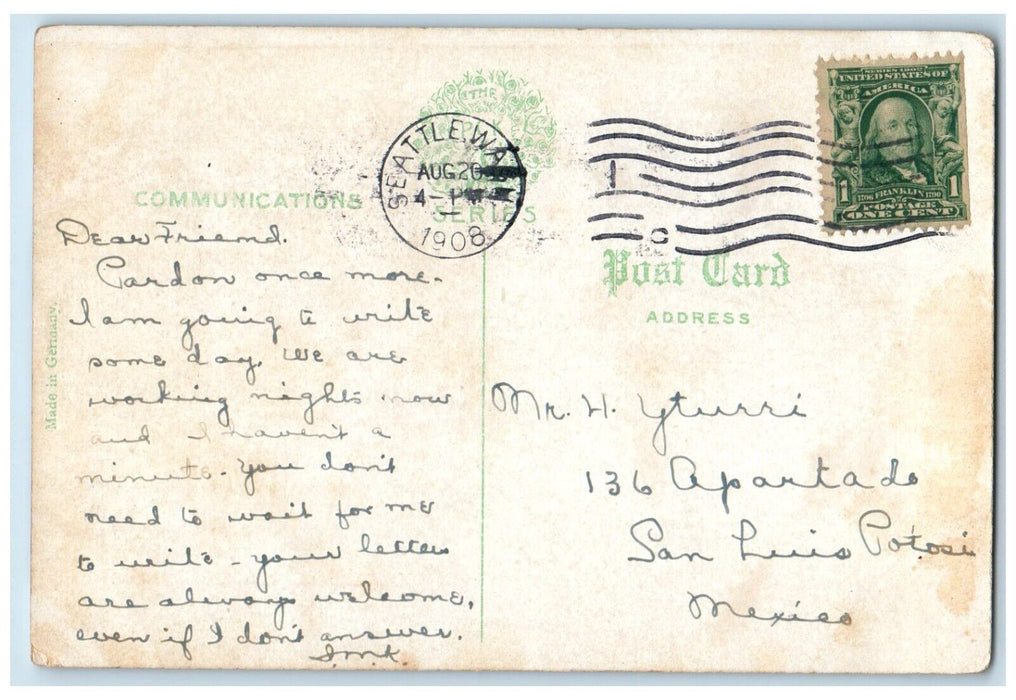 THE
COMMUNICATIONS
SERIES
SEATTLE, WA
AUG 20
4- PM
1908
1
C
SERIES 1902
UNITED STATES OF
AMERICA
1 FRANKLIN 1
1706 1790
POSTAGE
ONE CENT
Post Card
ADDRESS
Made in Germany.
Dear Friend.
Pardon once more.
I am going to write
some day. We are
working nights now
and I haven't a
minute. You don't
need to wait for me
to write - your letters
are always welcome,
even if I don't answer.
Mr. H. Yturri
136 Apartado
San Luis Potosi
Mexico